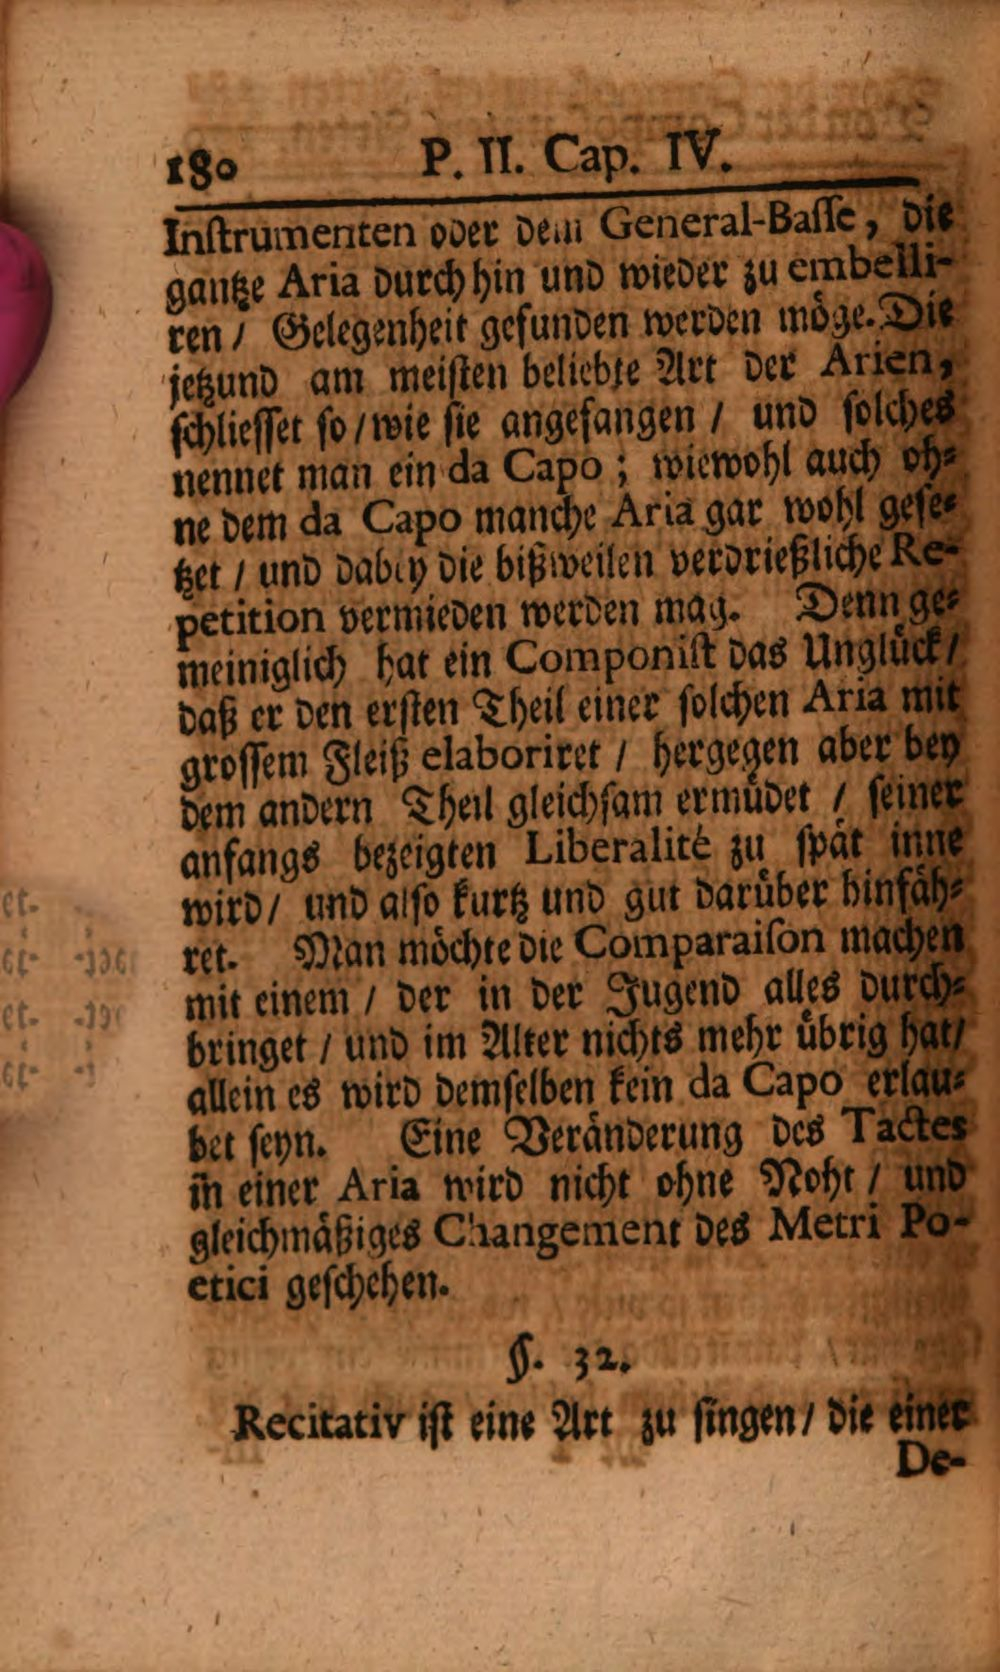 180 P. II. Cap. IV.
Inſtrumenten oder dem General-Baſſe, die
gantze Aria durch hin und wieder zu embelli-
ren / Gelegenheit gefunden werden möge. Die
jetzund am meiſten beliebte Art der Arien,
ſchlieſſet ſo / wie ſie angefangen / und ſolches
nennet man ein da Capo; wiewohl auch oh-
ne dem da Capo manche Aria gar wohl geſe-
tzet / und dabey die bißweilen verdrießliche Re-
petition vermieden werden mag. Denn ge-
meiniglich hat ein Componiſt das Unglück /
daß er den erſten Theil einer ſolchen Aria mit
groſſem Fleiß elaboriret / hergegen aber bey
dem andern Theil gleichſam ermüdet / ſeiner
anfangs bezeigten Liberalité zu ſpät inne
wird / und alſo kurtz und gut darüber hinfäh-
ret. Man möchte die Comparaiſon machen
mit einem / der in der Jugend alles durch-
bringet / und im Alter nichts mehr übrig hat /
allein es wird demſelben kein da Capo erlau-
bet ſeyn. Eine Veränderung des Tactes
in einer Aria wird nicht ohne Noht / und
gleichmäßiges Changement des Metri Po-
etici geſchehen.
§. 32.
Recitativ iſt eine Art zu ſingen / die einer
De-